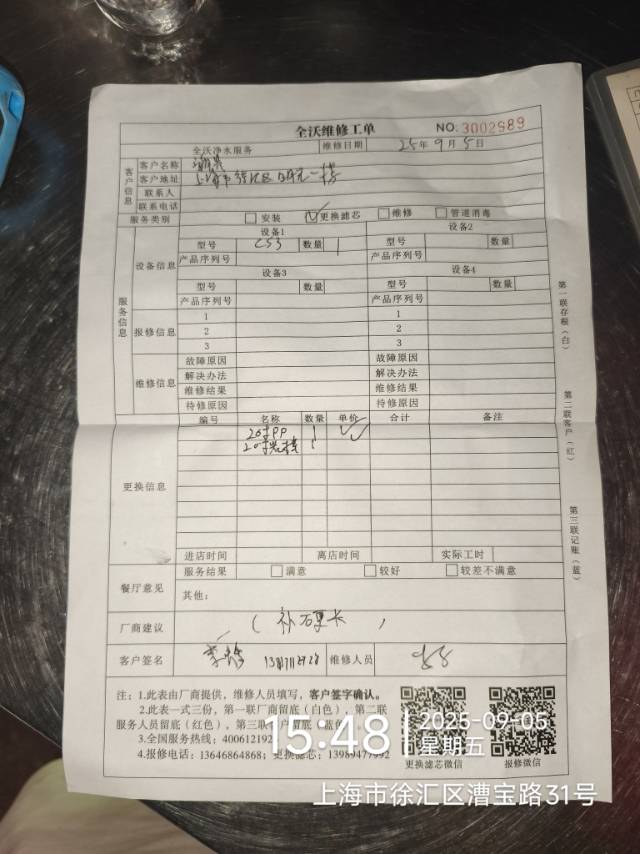 全沃维修工单 NO. 3002989
全沃净水服务 维修日期 25年9月5日
客户信息
客户名称
客户地址
联系人
联系电话
服务类别 安装 更换滤芯 维修 管道消毒
服务信息
设备信息
设备1 设备2
型号 C53 数量 1 型号 数量
产品序列号 产品序列号
设备3 设备4
型号 数量 型号 数量
产品序列号 产品序列号
报修信息
1 1
2 2
3 3
维修信息
故障原因 故障原因
解决办法 解决办法
维修结果 维修结果
待修原因 待修原因
更换信息
编号 名称 数量 单价 合计 备注
20寸PP 1
进店时间 离店时间 实际工时
餐厅意见
服务结果 满意 较好 较差不满意
其他:
厂商建议
客户签名 维修人员
注:1.此表由厂商提供,维修人员填写,客户签字确认。
2.此表一式三份,第一联厂商留底(白色),第二联
服务人员留底(红色),第三联
3.全国服务热线:400612192
4.报修电话:13646864868;更换滤芯:13989477992
更换滤芯微信 报修微信
第一联存根(白)
第二联客户(红)
第三联记账(蓝)
15:48
2025-09-05
星期五
上海市徐汇区漕宝路31号